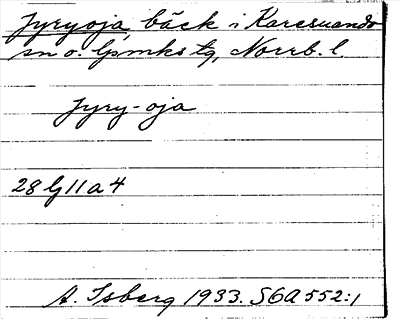 Jyryoja, bäck i Karesuando
sn o. lpmks tg, Norrb. l.
Jyry-oja
28 G 11 a 4
A. Isberg 1933. SGA 552:1